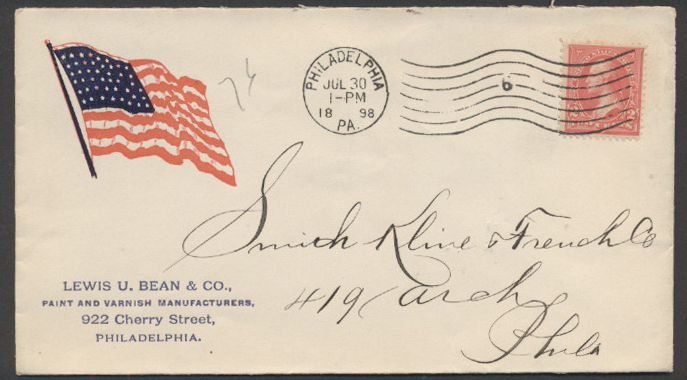 PHILADELPHIA
JUL 30
1-PM
18 98
PA.
6
2 2
74
Smith Kline & French Co
419 Arch
Phila
LEWIS U. BEAN & CO.,
PAINT AND VARNISH MANUFACTURERS,
922 Cherry Street,
PHILADELPHIA.